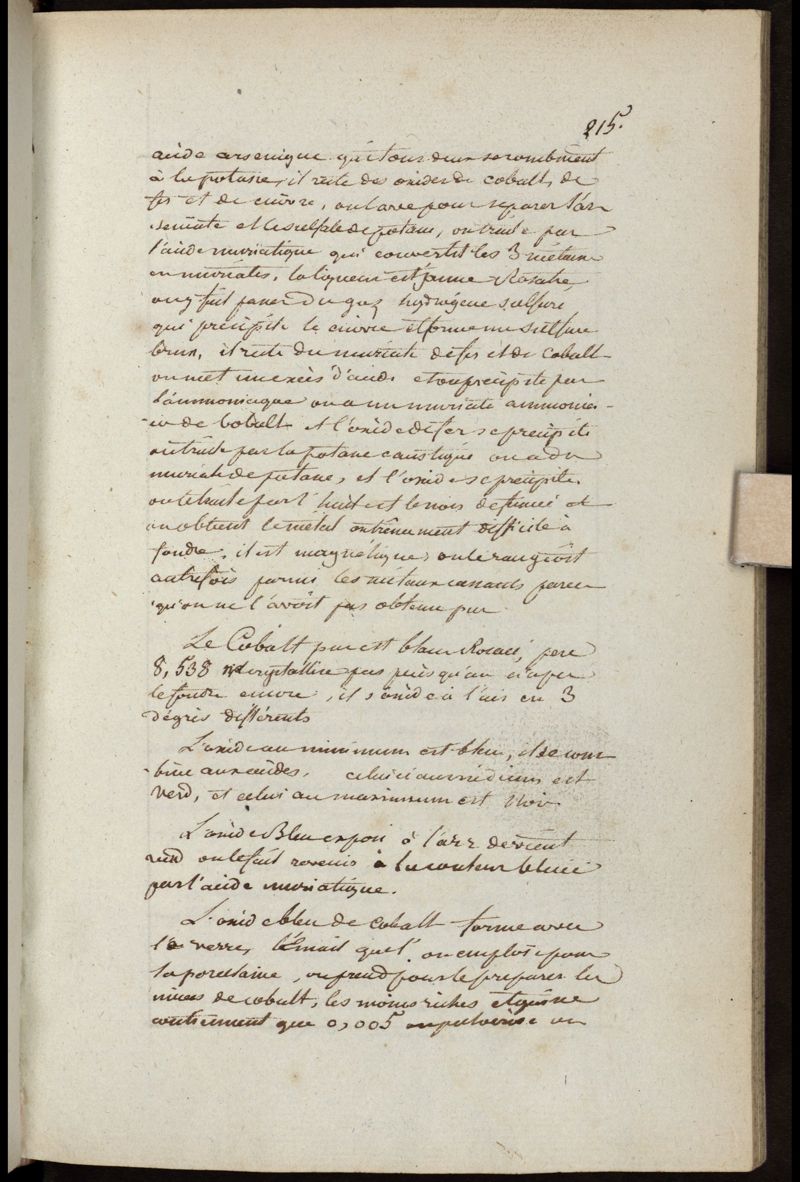 215.
acide arsenique qui tous deux se combinent
à la potasse, il reste des oxides de cobalt, de
fer et de cuivre, on lave pour séparer l'ar-
seniate et le sulfate de potasse, on traite par
l'acide muriatique qui convertit les 3 métaux
en muriates, la liqueur est jaune Rosatre,
on y fait passer du gaz hydrogène sulfuré
qui précipite le cuivre et forme un sulfure
brun, il reste du muriate de fer et de cobalt
on met un excès d'acide et on précipite par
l'ammoniaque on a un muriate ammonia-
-co de Cobalt et l'oxide de fer se précipite
on traite par la potasse caustique on a du
muriate de potasse, et l'oxide se précipite
on le traite par l'huile et le noir de fumée et
on obtient le métal extrêmement difficile à
fondre, il est magnétique, on le rangeoit
autrefois parmi les métaux cassants parce
qu'on ne l'avoit pas obtenu pur.
Le Cobalt pur est blanc Rosacé, pese
8,538 cristallise pas puisqu'on n'a pu
le fondre encore, il s'oxide à l'air en 3
dégrés différents
L'oxide au minimum est bleu, il se com
-bine aux acides, celui ci au médium est
verd, et celui au maximum est Noir
L'oxide Bleu exposé à l'air devient
verd on le fait revenir à la couleur bleue
par l'acide muriatique.
L'oxide bleu de Cobalt forme avec
le verre, l'émail que l'on emploie pour
la porcelaine, on prend pour le préparer les
mines de cobalt, les moins riches et qui ne
contiennent que 0,005 on pulvérise on